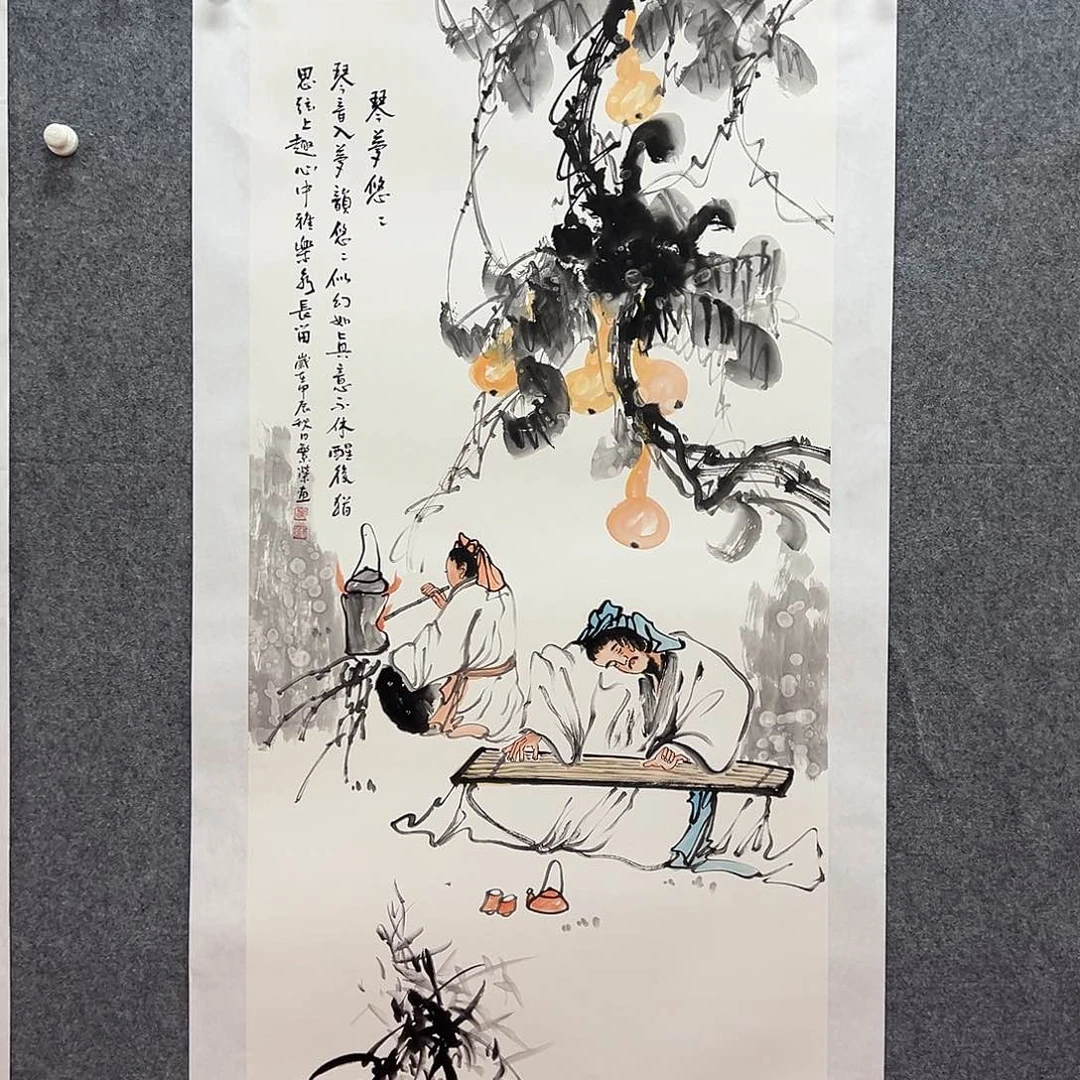 琴夢悠〻
琴音入夢韻悠〻似幻如真意不休醒後猶
思弦上趣心中雅樂永長留歲在甲辰秋日繁傑画